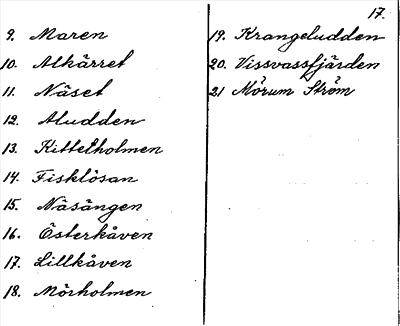 17.
9. Maren
10. Alkärret
11. Näset
12. Aludden
13. Kittelholmen
14. Fisklösan
15. Näsängen
16. Österkåven
17. Lillkåven
18. Mörholmen
19. Krangeludden
20. Vissvassfjärden
21 Mörum Ström